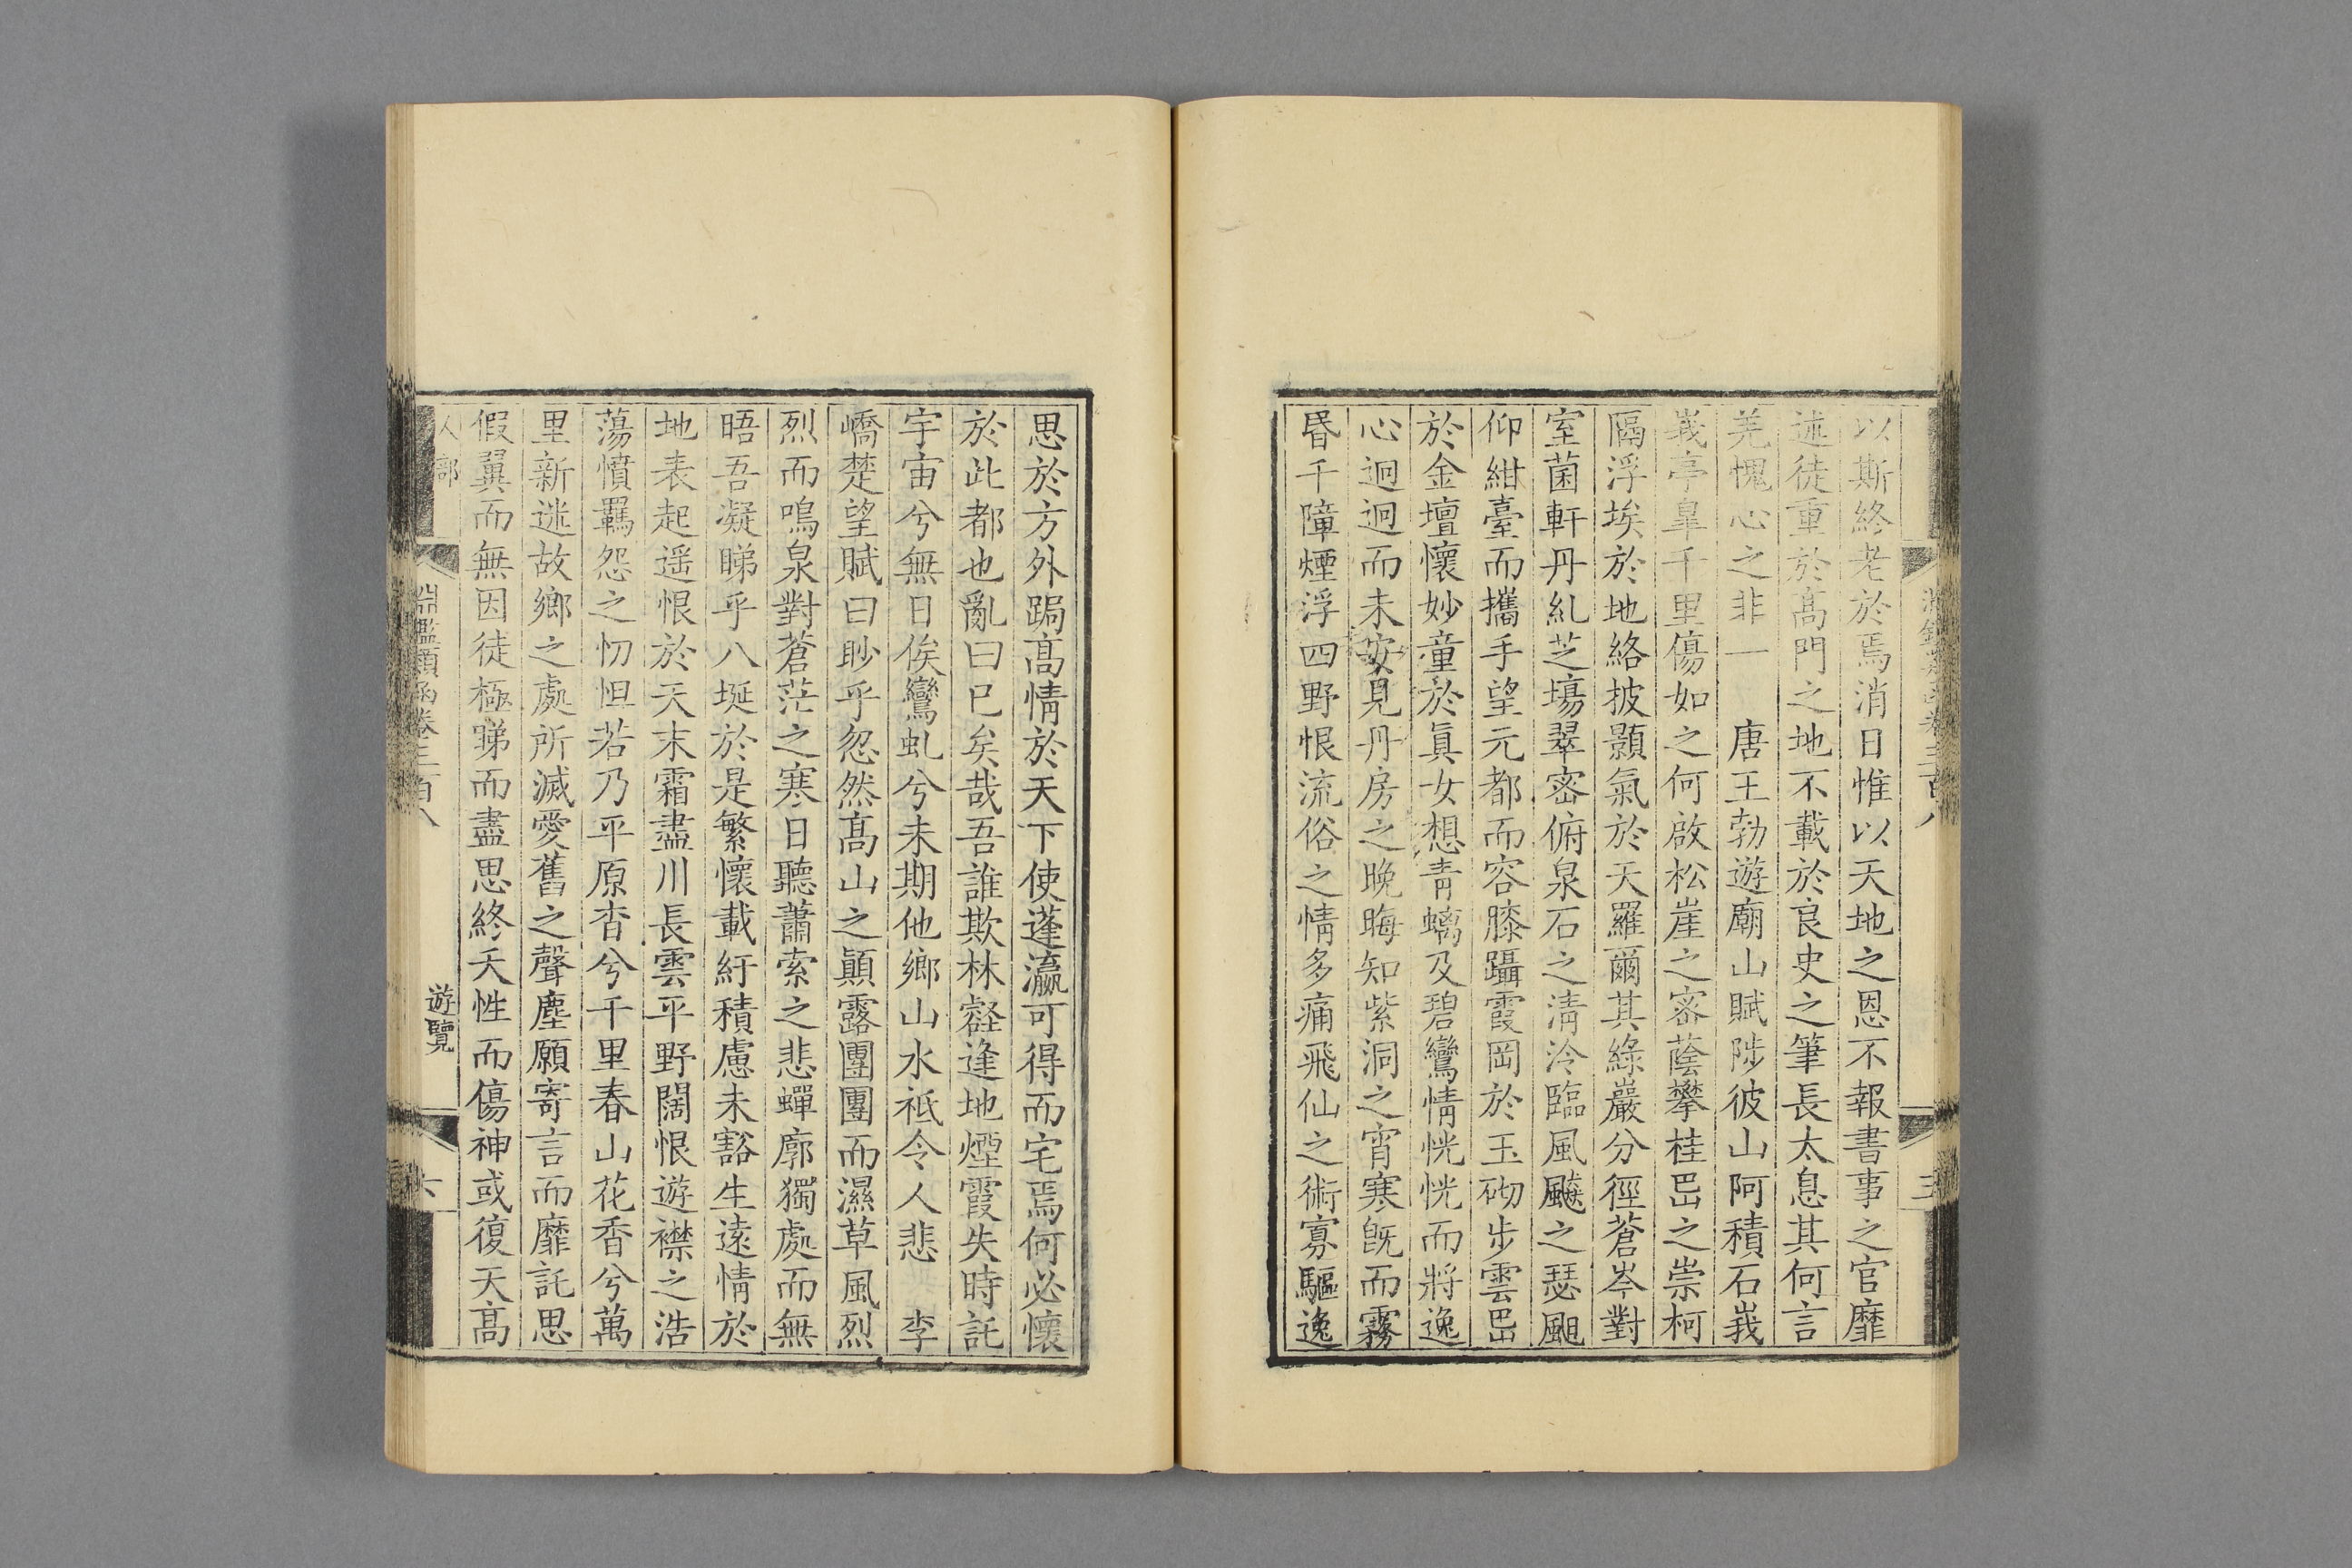 以斯終老於焉消日惟以天地之恩不報書事之官靡
述徒重於高門之地不載於良史之筆長太息其何言
羌愧心之非一　唐王勃遊廟山賦陟彼山阿積石峩
峩亭皐千里傷如之何啟松崖之密蔭攀桂㟭之崇柯
隔浮埃於地絡披顥氣於天羅爾其綠巖分徑蒼岑對
室菌軒丹糺芝塲翠密俯泉石之淸泠臨風飈之瑟颸
仰紺臺而攜手望元都而容膝躡霞岡於玉砌步雲㟭
於金壇懷妙童於眞女想靑螭及碧鸞情恍恍而將逸
心迥迥而未安見丹房之晚晦知紫洞之宵寒旣而霧
昬千障煙浮四野恨流俗之情多痛飛仙之術寡驅逸
思於方外跼高情於天下使蓬瀛可得而宅焉何必懷
於此都也亂曰已矣哉吾誰欺林壑逢地煙霞失時託
宇宙兮無日俟鸞虬兮未期他鄉山水祇令人悲　李
嶠楚望賦曰眇乎忽然高山之顚露團團而濕草風烈
烈而鳴泉對蒼茫之寒日聽蕭索之悲蟬廓獨處而無
晤吾凝睇乎八埏於是繁懷載紆積慮未豁生遠情於
地表起遥恨於天末霜盡川長雲平野闊恨遊襟之浩
蕩憤羈怨之忉怛若乃平原杳兮千里春山花香兮萬
里新迷故鄉之處所滅愛舊之聲塵願寄言而靡託思
假翼而無因徒極睇而盡思終夭性而傷神或復天高
人部
淵鑑類函卷三百八
遊覽
六